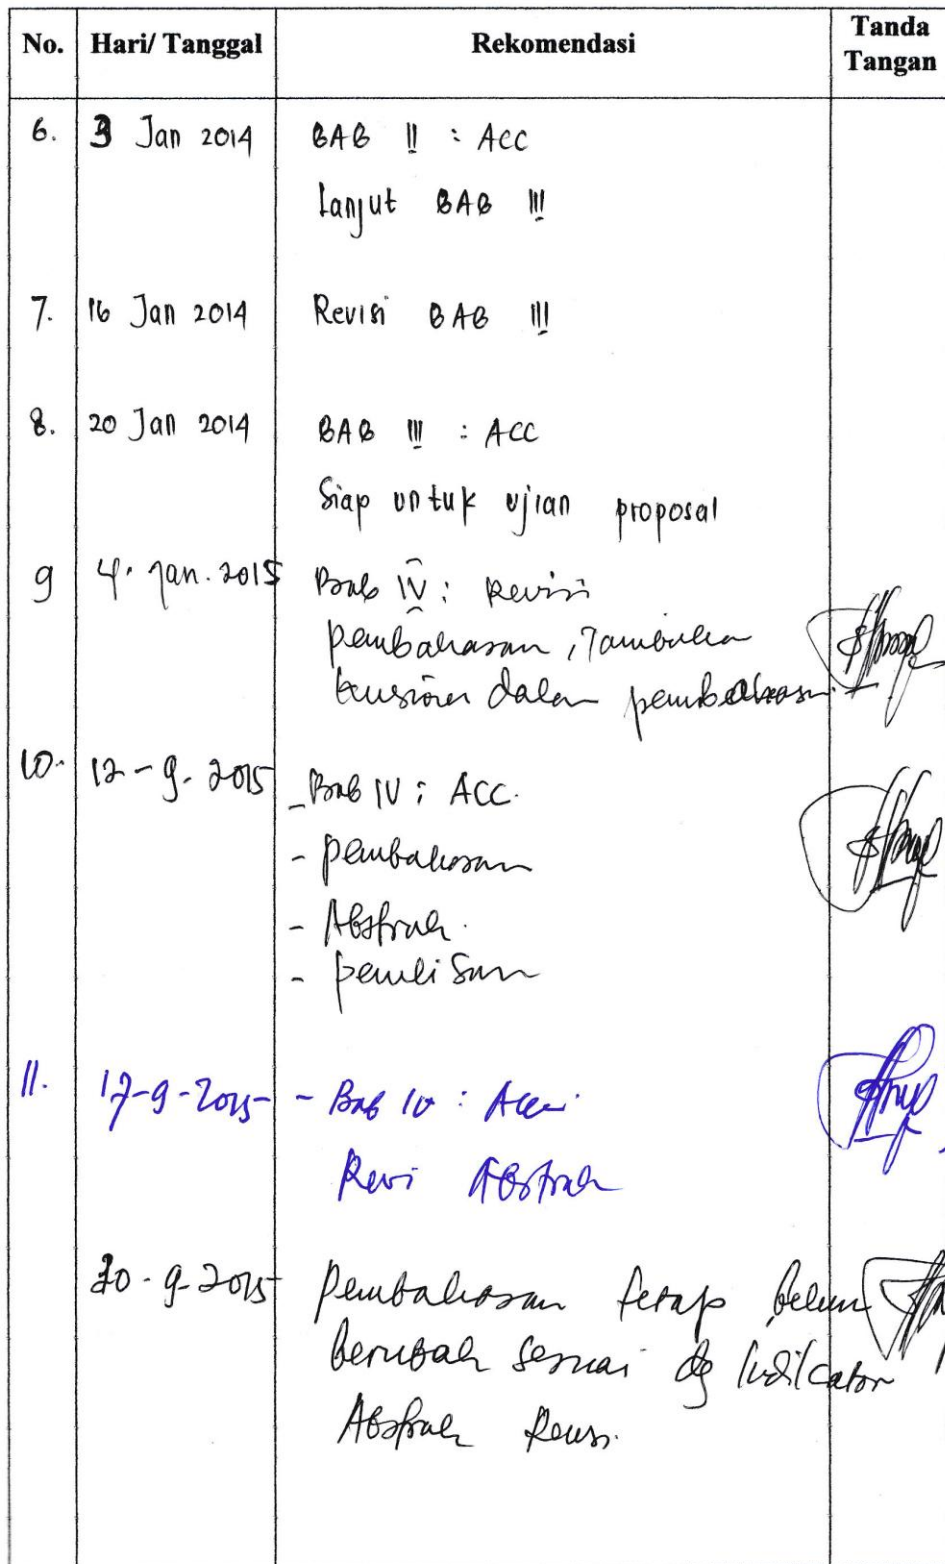 No. Hari/ Tanggal Rekomendasi Tanda Tangan
6. 3 Jan 2014 BAB II : ACC
Lanjut BAB III
7. 16 Jan 2014 Revisi BAB III
8. 20 Jan 2014 BAB III : ACC
Siap untuk ujian proposal
9 4. Jan. 2015 Bab IV : Revisi
pembahasan, Tambahkan
kusioner dalam pembahasan.
10. 12-9-2015 - Bab IV : ACC.
- pembahasan
- Abstrak.
- penulisan
11. 17-9-2015 - Bab IV : Acc.
Revi Abstrak
20-9-2015 pembahasan tetap belum
berubah sesuai dg Indikator
Abstrak Revisi.